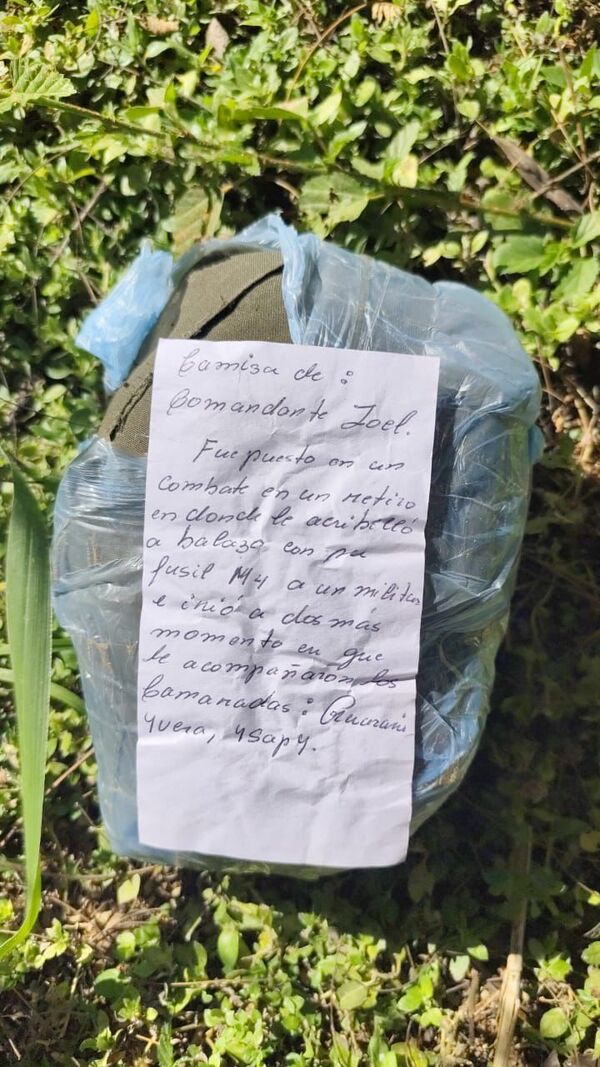 Camisa de :
Comandante Joel.
Fue puesto en un
combate en un retiro
en donde le acribilló
a balazo con pu
fusil M4 a un militar
e irió a dos más
momento en que
le acompañaron los
Camaradas : Guarani
Yvera, Ysapy.